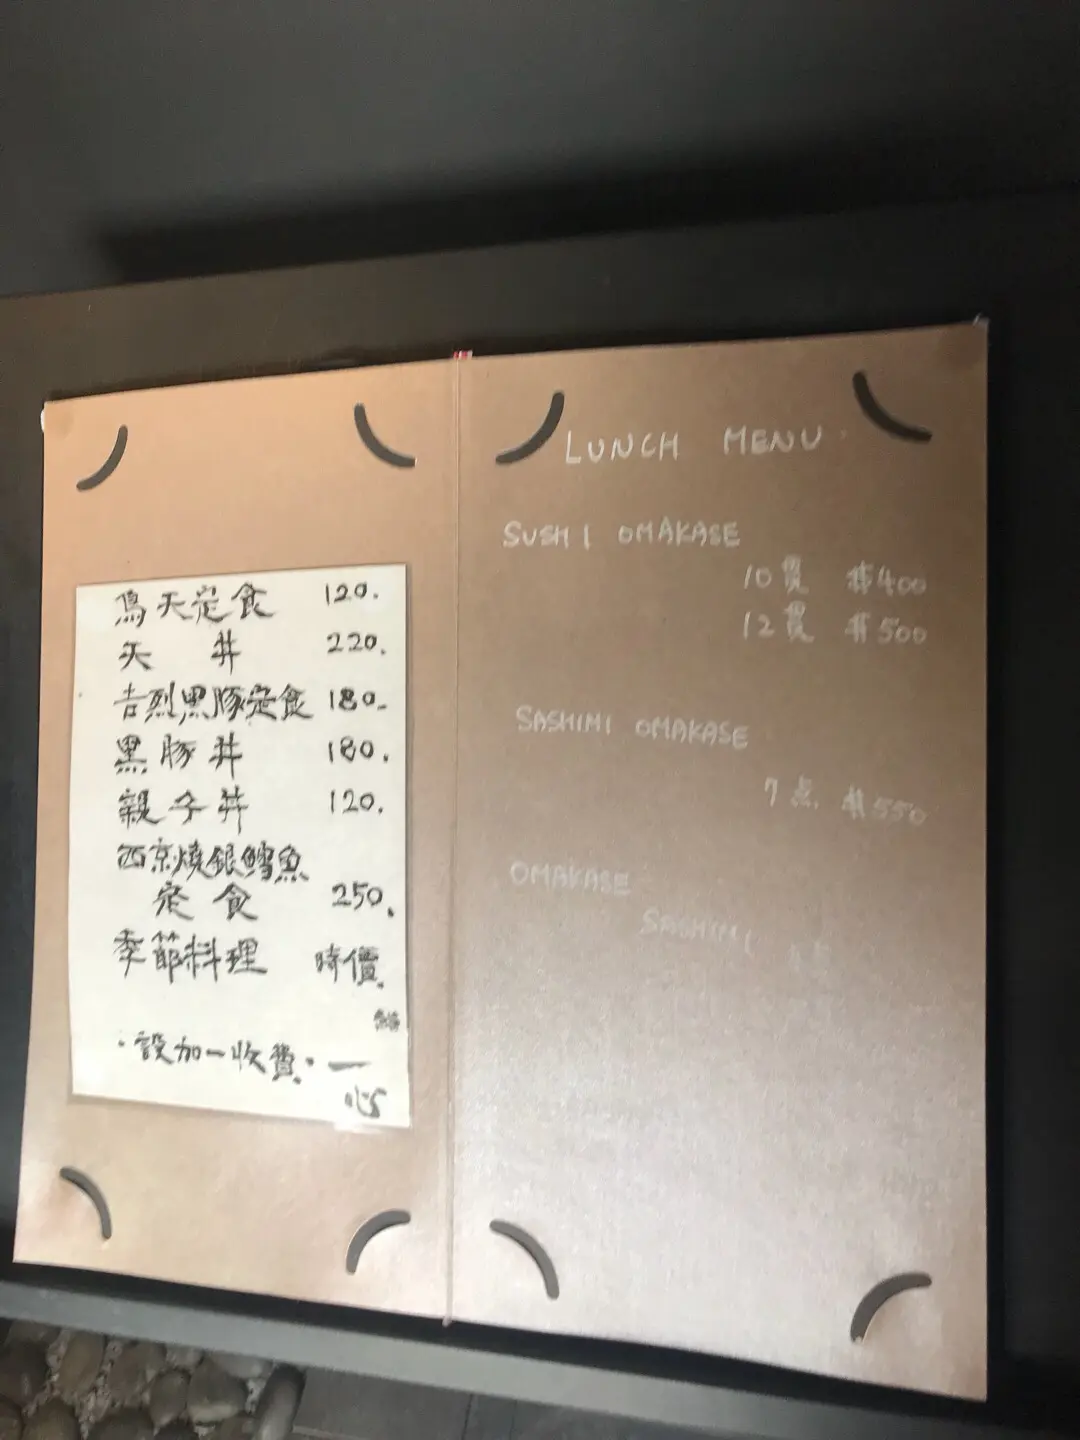 鳥天定食 120.
天丼 220.
吉烈黑豚定食 180.
黑豚丼 180.
親子丼 120.
西京燒銀鱈魚
定食 250.
季節料理 時價.
·設加一收費·
LUNCH MENU
SUSHI OMAKASE
10貫 $400
12貫 $500
SASHIMI OMAKASE
7点 $550
OMAKASE
SASHIMI